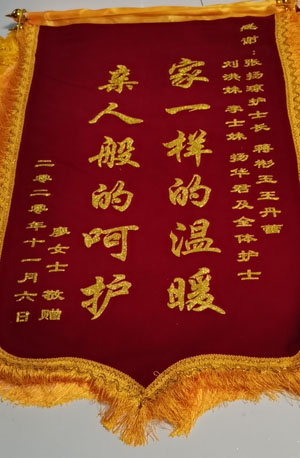 感谢：张扬琼护士长 蒋彬玉 王丹蕾
刘洪妹 李士妹 杨华君及全体护士
家一样的温暖
亲人般的呵护
廖女士 敬赠
二零二零年十一月六日